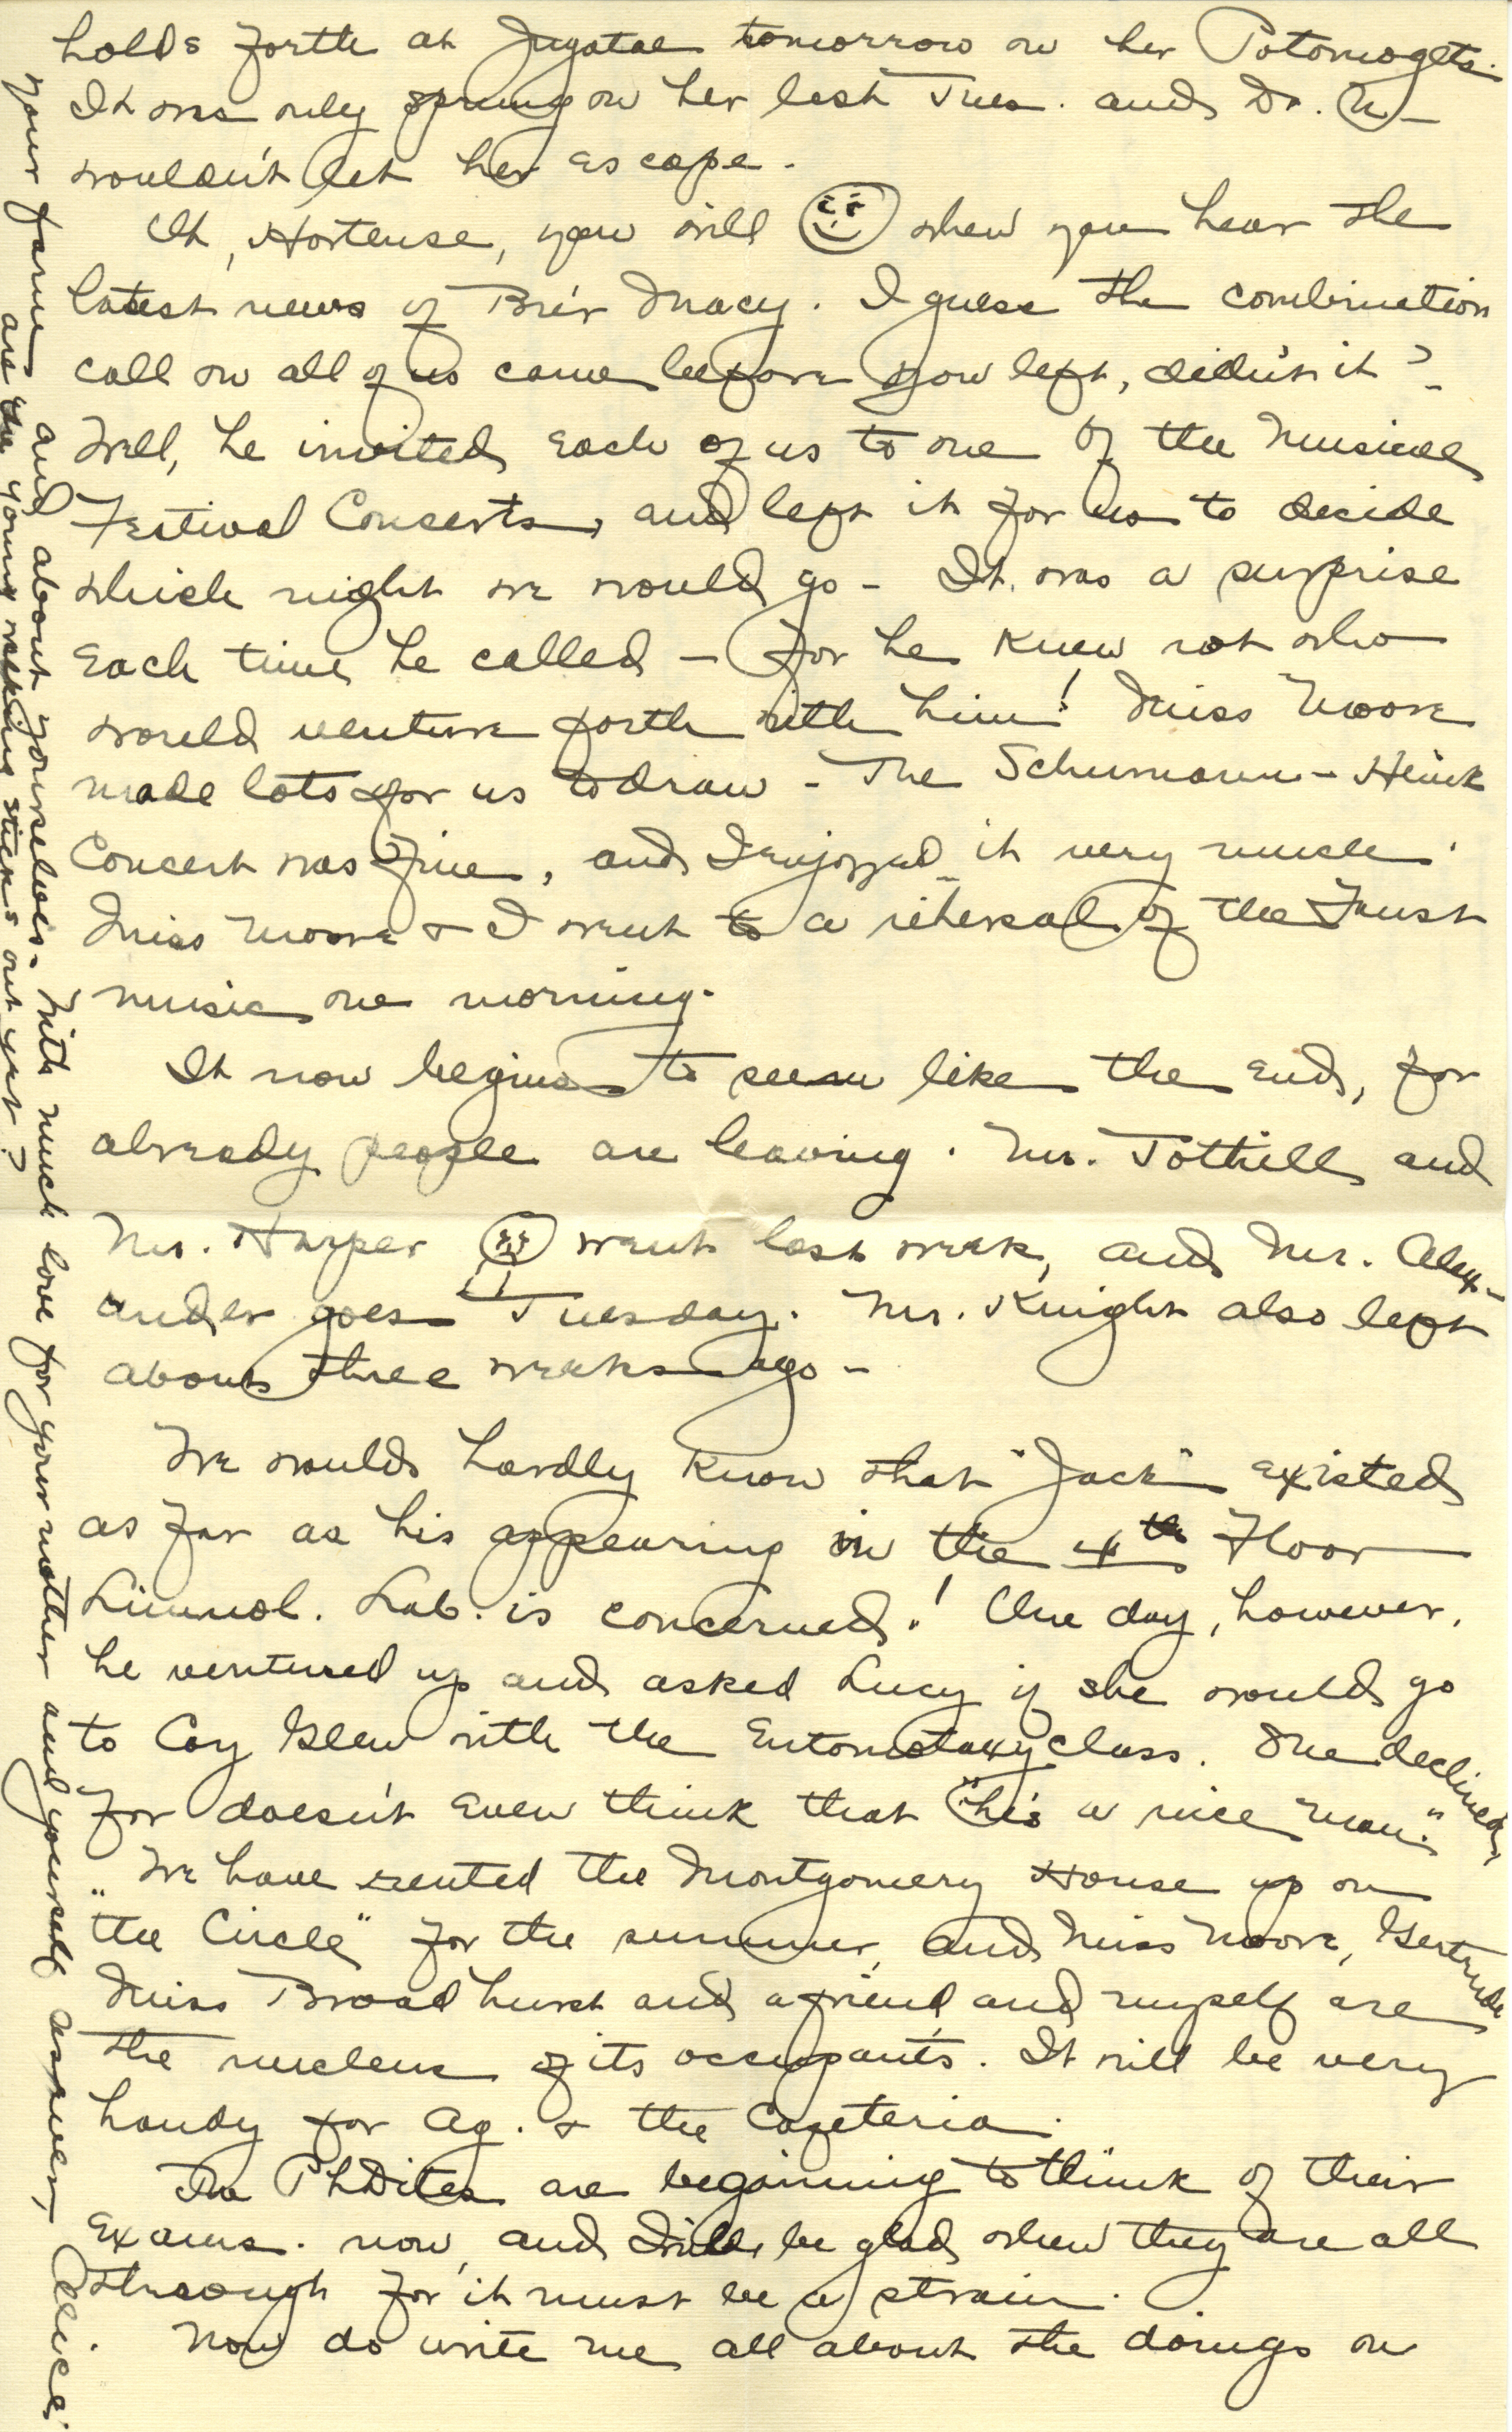 holds forth at Jugatae tomorrow on her Potomogets.
It was only sprung on her last Tues. and Dr. N_
wouldn't let her escape.
Oh, Hortense, you will when you hear the
latest news of Br'er Macy. I guess the combination
call on all of us came before you left, didn't it?
Well, he invited each of us to one of the Musical
Festival Concerts, and left it for us to decide
which night we would go - It was a surprise
each time he called - for he knew not who
would venture forth with him! Miss Moore
made lots for us to draw - The Schumann-Heink
Concert was fine, and I enjoyed it very much.
Miss Moore & I went to a rehersal of the Faust
music one morning.
It now begins to seem like the end, for
already people are leaving. Mr. Tothill and
Mr. Harper went last week, and Mr. Alex-
ander goes Tuesday. Mr. Knight also left
about three weeks ago -
We would hardly know that "Jack" existed
as far as his appearing in the 4th Floor
Limnol. Lab. is concerned! One day, however,
he ventured up and asked Lucy if she would go
to Coy Glen with the Entomotaxy class. She declined,
for doesn't even think that "he's a nice man."
We have rented the Montgomery House up on
"the Circle" for the summer, and Miss Moore, Gertrude
Miss Broadhurst and a friend, and myself are
the nucleus of its occupants. It will be very
handy for Ag. & the Cafeteria.
The PhDites are beginning to think of their
exams. now, and I will be glad when they are all
through for it must be a strain.
Now do write me all about the doings on
your farm and about yourselves. With much love for your mother and yourself as ever, Alice.
are the young walking sticks out yet?